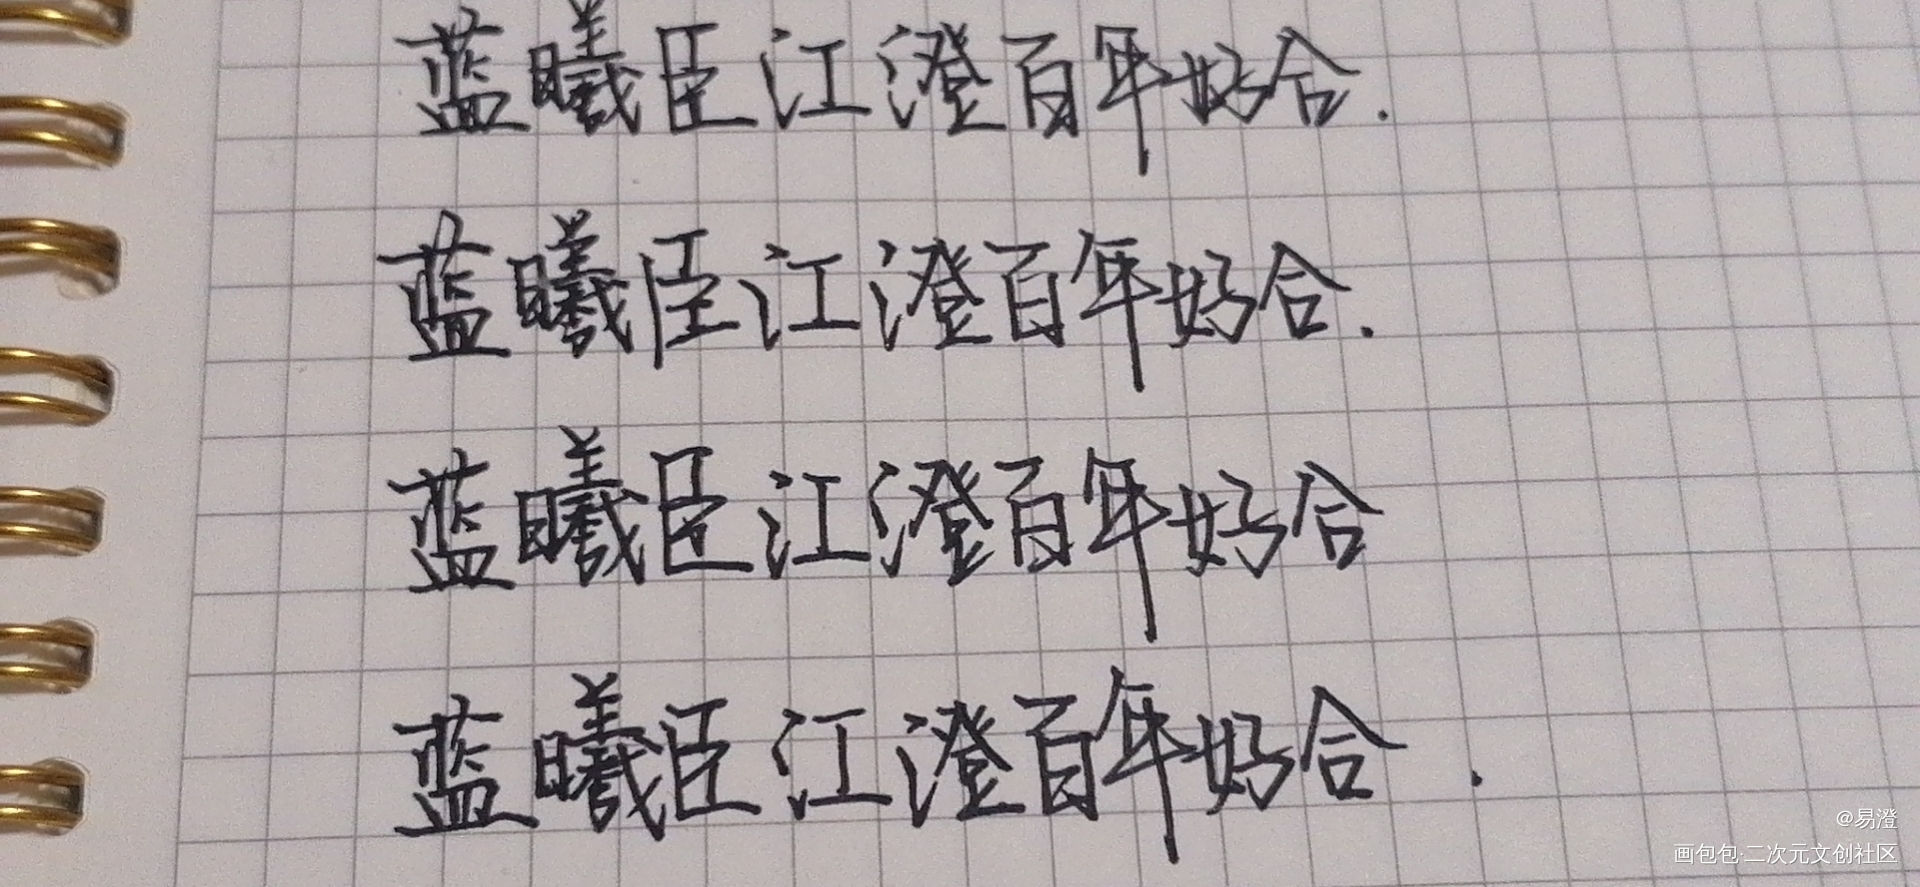 蓝曦臣江澄百年好合.
蓝曦臣江澄百年好合.
蓝曦臣江澄百年好合
蓝曦臣江澄百年好合.
@易澄
画包包·二次元文创社区